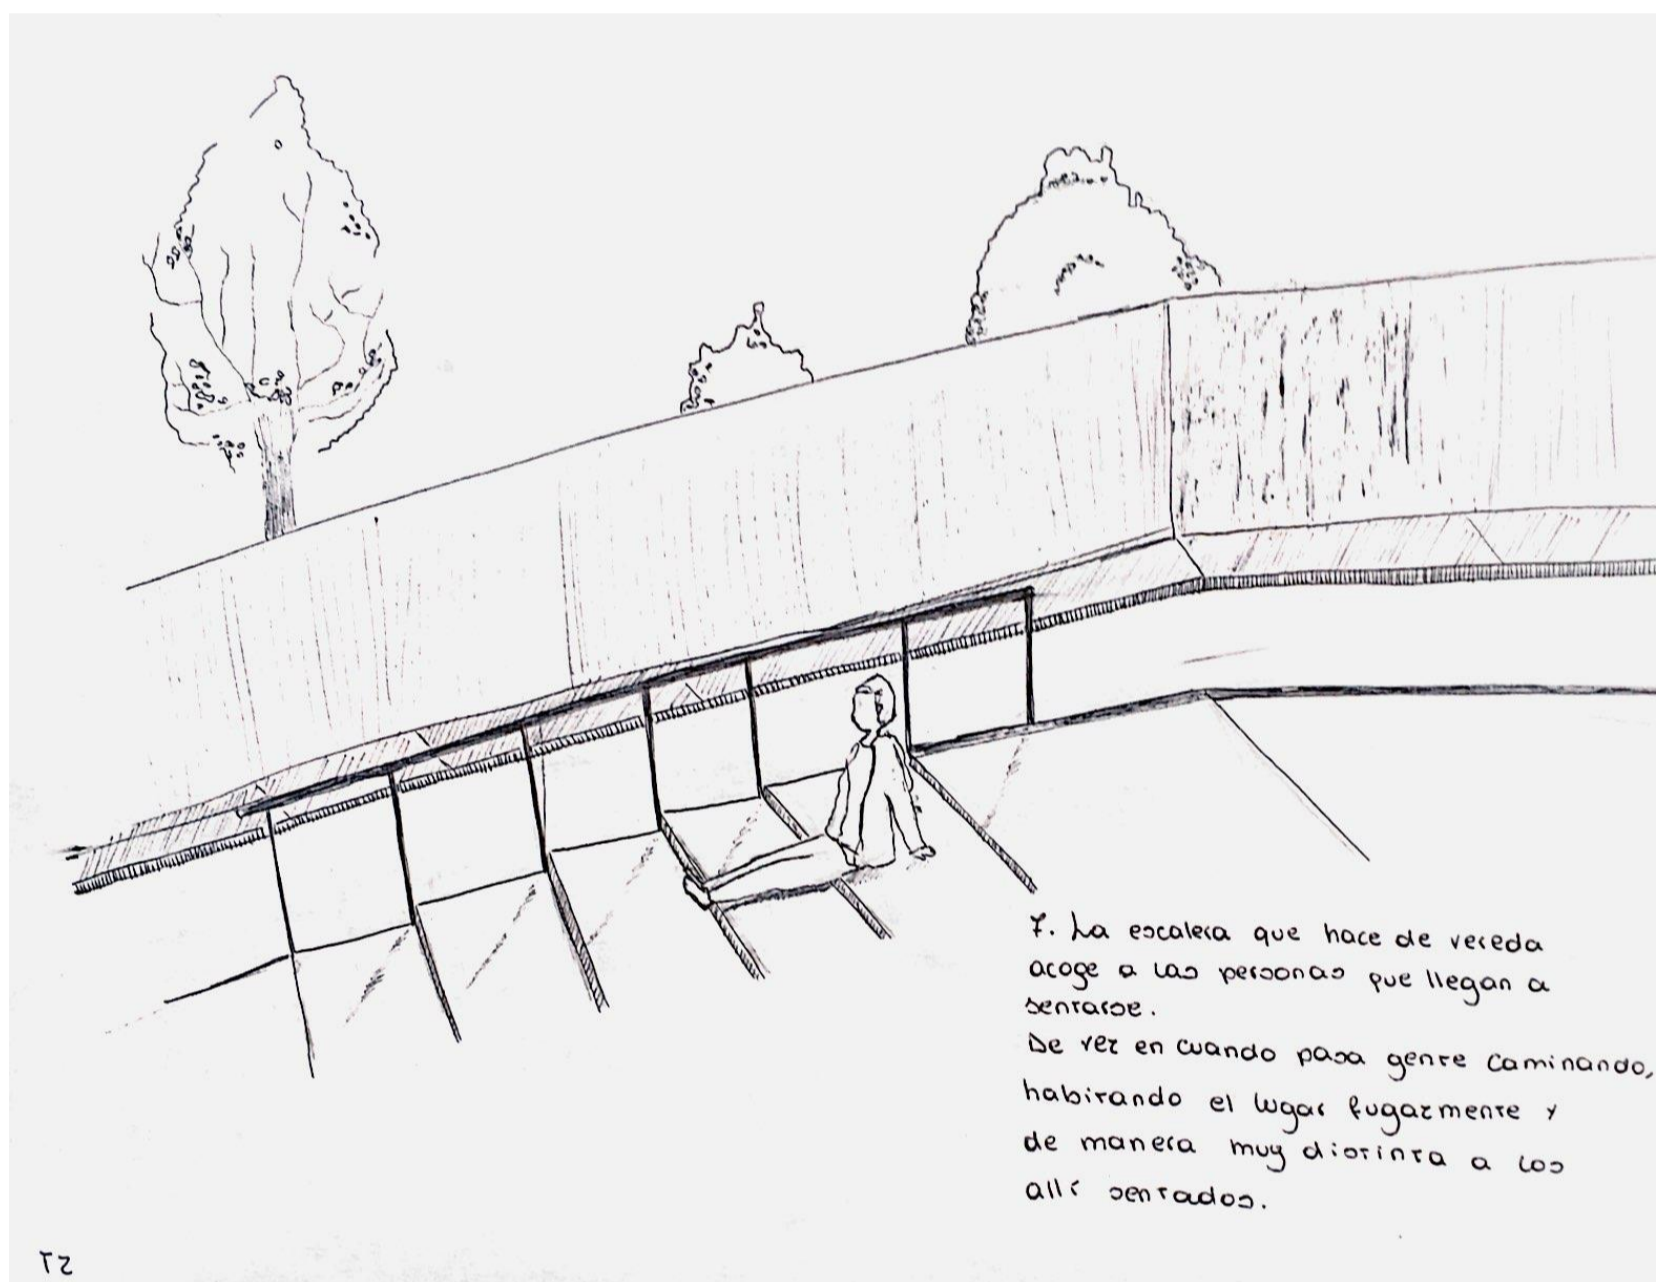 7. La escalera que hace de vereda
acoge a las personas que llegan a
sentarse.
De vez en cuando pasa gente caminando,
habitando el lugar fugazmente y
de manera muy distinta a los
allí sentados.
T2